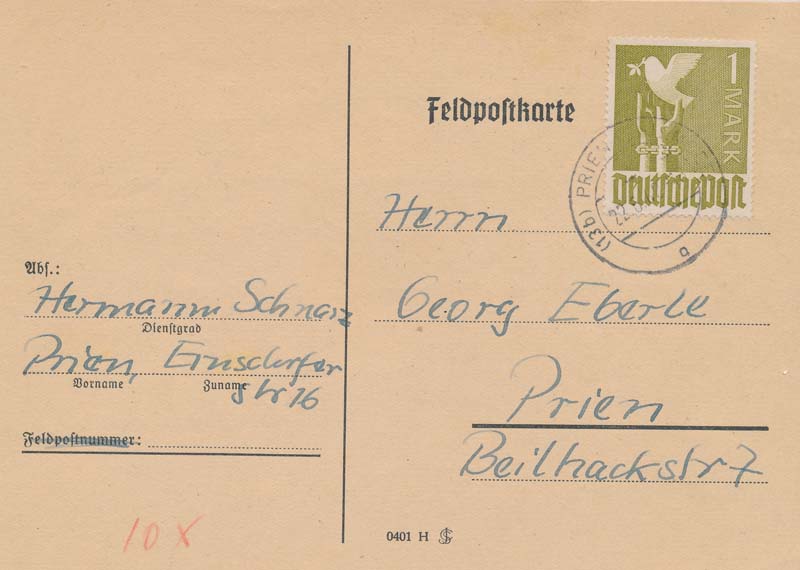 Feldpostkarte
1 MARK
deutsche post
(13b) PRIEN
22.
b
Herrn
Georg Eberle
Prien
Beilhackstr 7
Abs.:
Hermann Schnarz
Dienstgrad
Prien, Ernsdorfer
Vorname Zuname
Str 16
Feldpostnummer:
10 x
0401 H